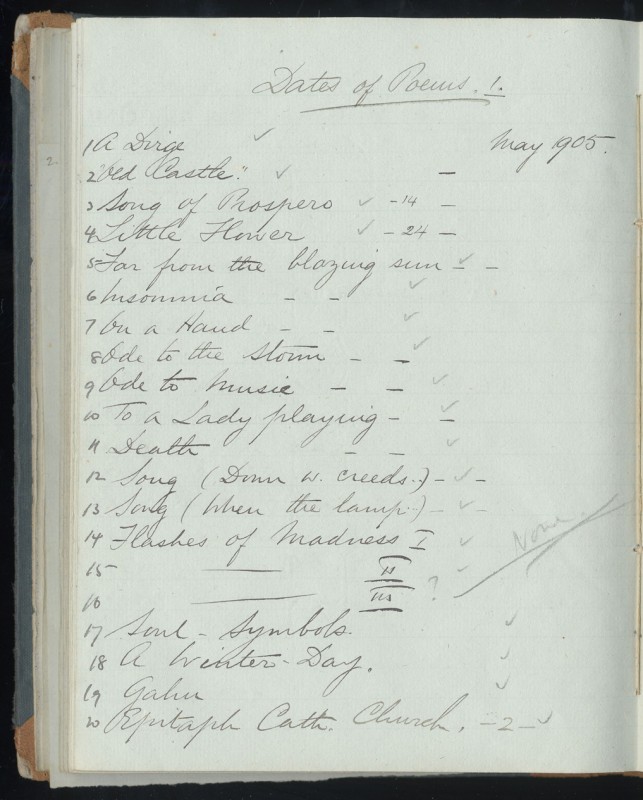 Dates of Poems. 1.
2.
1 A Dirge ✓ May 1905.
2 "Old Castle." ✓ —
3 Song of Prospero ✓ – 14 —
4 Little Flower ✓ – 24 —
5 Far from the blazing sun – ✓ –
6 Insomnia – – ✓
7 On a Hand – – ✓
8 Ode to the Storm – – ✓
9 Ode to Music – – ✓
10 To a Lady playing – – ✓
11 Death – – ✓
12 Song (Down w. creeds.) – ✓ –
13 Song (When the lamp..) – ✓ –
14 Flashes of Madness I ✓
None.
15 —— II ✓
16 —— III ?
17 Soul-Symbols. ✓
18 A Winter-Day. ✓
19 ✓
20 Epitaph Cath. Church. – 2 – ✓